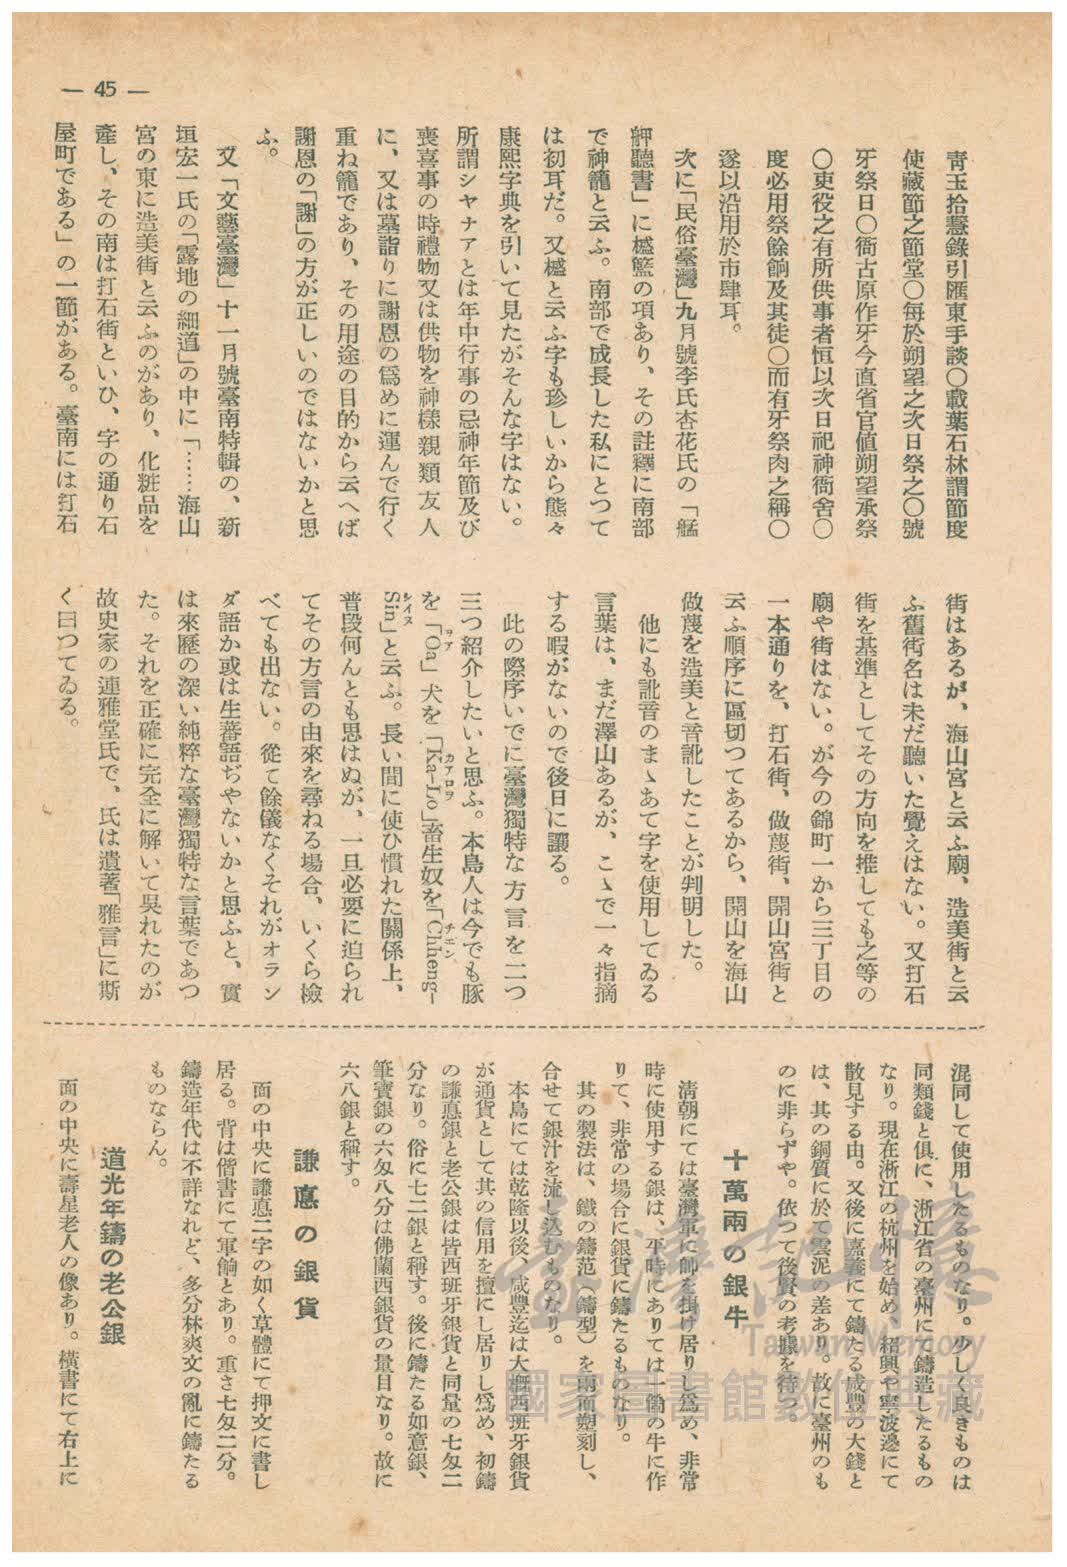 — 45 —
靑玉拾慧錄引匯東手談〇載葉石林謂節度
使藏節之節堂〇每於朔望之次日祭之〇號
牙祭日〇衙古原作牙今直省官値朔望承祭
〇吏役之有所供事者恒以次日祀神衙舍〇
度必用祭餘餉及其徒〇而有牙祭肉之稱〇
遂以沿用於市肆耳。
次に「民俗臺灣」九月號李氏杏花氏の「艋
舺聽書」に槴籃の項あり、その註釋に南部
で神籠と云ふ。南部で成長した私にとつて
は初耳だ。又槴と云ふ字も珍しいから態々
康熙字典を引いて見たがそんな字はない。
所謂シヤナアとは年中行事の忌神年節及び
喪喜事の時禮物又は供物を神樣親類友人
に、又は墓詣りに謝恩の爲めに運んで行く
重ね籠であり、その用途の目的から云へば
謝恩の「謝」の方が正しいのではないかと思
ふ。
又「文藝臺灣」十一月號臺南特輯の、新
垣宏一氏の「露地の細道」の中に「……海山
宮の東に造美街と云ふのがあり、化粧品を
產し、その南は打石街といひ、字の通り石
屋町である」の一節がある。臺南には打石
街はあるが、海山宮と云ふ廟、造美街と云
ふ舊街名は未だ聽いた覺えはない。又打石
街を基準としてその方向を推しても之等の
廟や街はない。が今の錦町一から三丁目の
一本通りを、打石街、做蔑街、開山宮街と
云ふ順序に區切つてあるから、開山を海山
做蔑を造美と音訛したことが判明した。
他にも訛音のまゝあて字を使用してゐる
言葉は、まだ澤山あるが、こゝで一々指摘
する暇がないので後日に讓る。
此の際序いでに臺灣獨特な方言を二つ
三つ紹介したいと思ふ。本島人は今でも豚
を「Oa」犬を「Ka-Lo」畜生奴を「Chheng-
Sin」と云ふ。長い間に使ひ慣れた關係上、
普段何んとも思はぬが、一旦必要に迫られ
てその方言の由來を尋ねる場合、いくら檢
べても出ない。從て餘儀なくそれがオラン
ダ語か或は生蕃語ぢやないかと思ふと、實
は來歷の深い純粹な臺灣獨特な言葉であつ
た。それを正確に完全に解いて吳れたのが
故史家の連雅堂氏で、氏は遺著「雅言」に斯
く曰つてゐる。
混同して使用したるものなり。少しく良きものは
同類錢と俱に、浙江省の臺州にて鑄造したるもの
なり。現在浙江の杭州を始め、紹興や寧波邊にて
散見する由。又後に嘉義にて鑄たる咸豐の大錢と
は、其の銅質に於て雲泥の差あり。故に臺州のも
のに非らずや。依つて後賢の考據を待つ。
十萬兩の銀牛
淸朝にては臺灣軍に帥を掛け居りし爲め、非常
時に使用する銀は、平時にありては一箇の牛に作
りて、非常の場合に銀貨に鑄たるものなり。
其の製法は、鐵の鑄范（鑄型）を兩面塑刻し、
合せて銀汁を流し込むものなり。
本島にては乾隆以後、咸豐迄は大槪西班牙銀貨
が通貨として其の信用を擅にし居りし爲め、初鑄
の謙悳銀と老公銀は皆西班牙銀貨と同量の七匁二
分なり。俗に七二銀と稱す。後に鑄たる如意銀、
筆寶銀の六匁八分は佛蘭西銀貨の量目なり。故に
六八銀と稱す。
謙悳の銀貨
面の中央に謙悳二字の如く草體にて押文に書し
居る。背は偕書にて軍餉とあり。重さ七匁二分。
鑄造年代は不詳なれど、多分林爽文の亂に鑄たる
ものならん。
道光年鑄の老公銀
面の中央に壽星老人の像あり。橫書にて右上に
臺灣記憶
Taiwan Memory
國家圖書館數位典藏